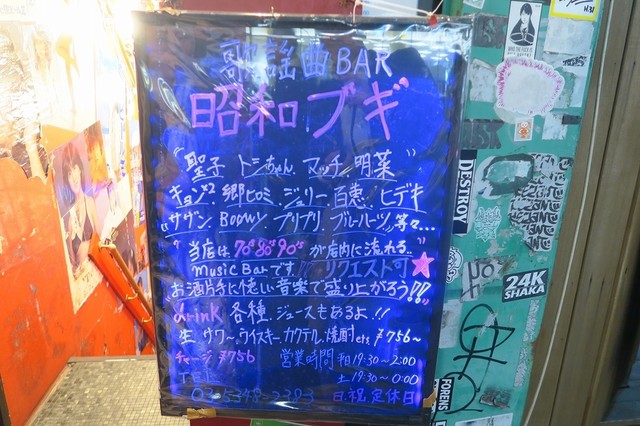 歌謡曲BAR
昭和ブギ
"聖子 トシちゃん マッチ 明菜
キョン² 郷ヒロミ ジュリー 百恵 ヒデキ
サザン BOOWY プリプリ ブルーハーツ 等々...
"当店は、70's 80's 90'sが店内に流れる。"
Music Barです!! リクエスト可★
"お酒片手に懐しい音楽で盛り上がろう!!"
drink 各種 ジュースもあるよ!!
生 サワー、ウイスキー、カクテル、焼酎 etc ¥756〜
チャージ ¥756 営業時間 平日 19:30~2:00
土 19:30~0:00
03-5348-2383 日.祝 定休日
DESTROY
24K
SHAKA
FORENS